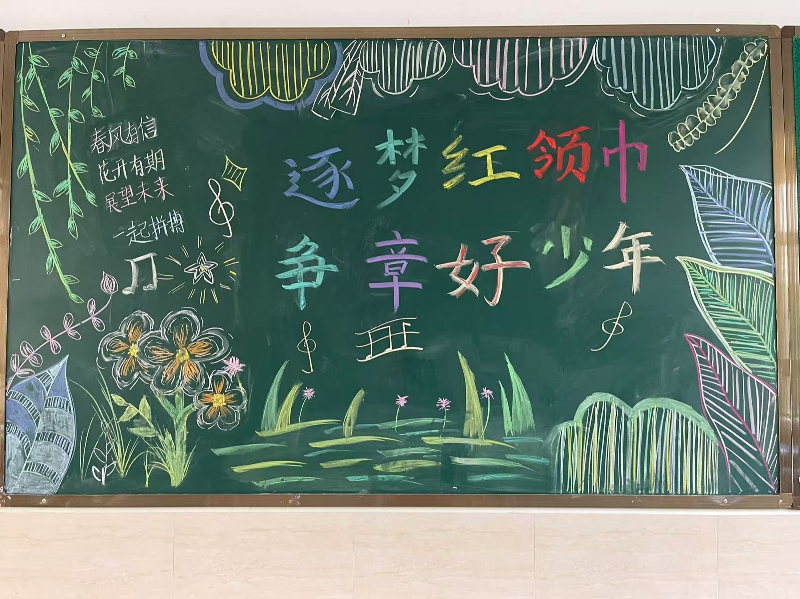 春风有信
花开有期
展望未来
一起拼搏
逐梦红领巾
争章好少年